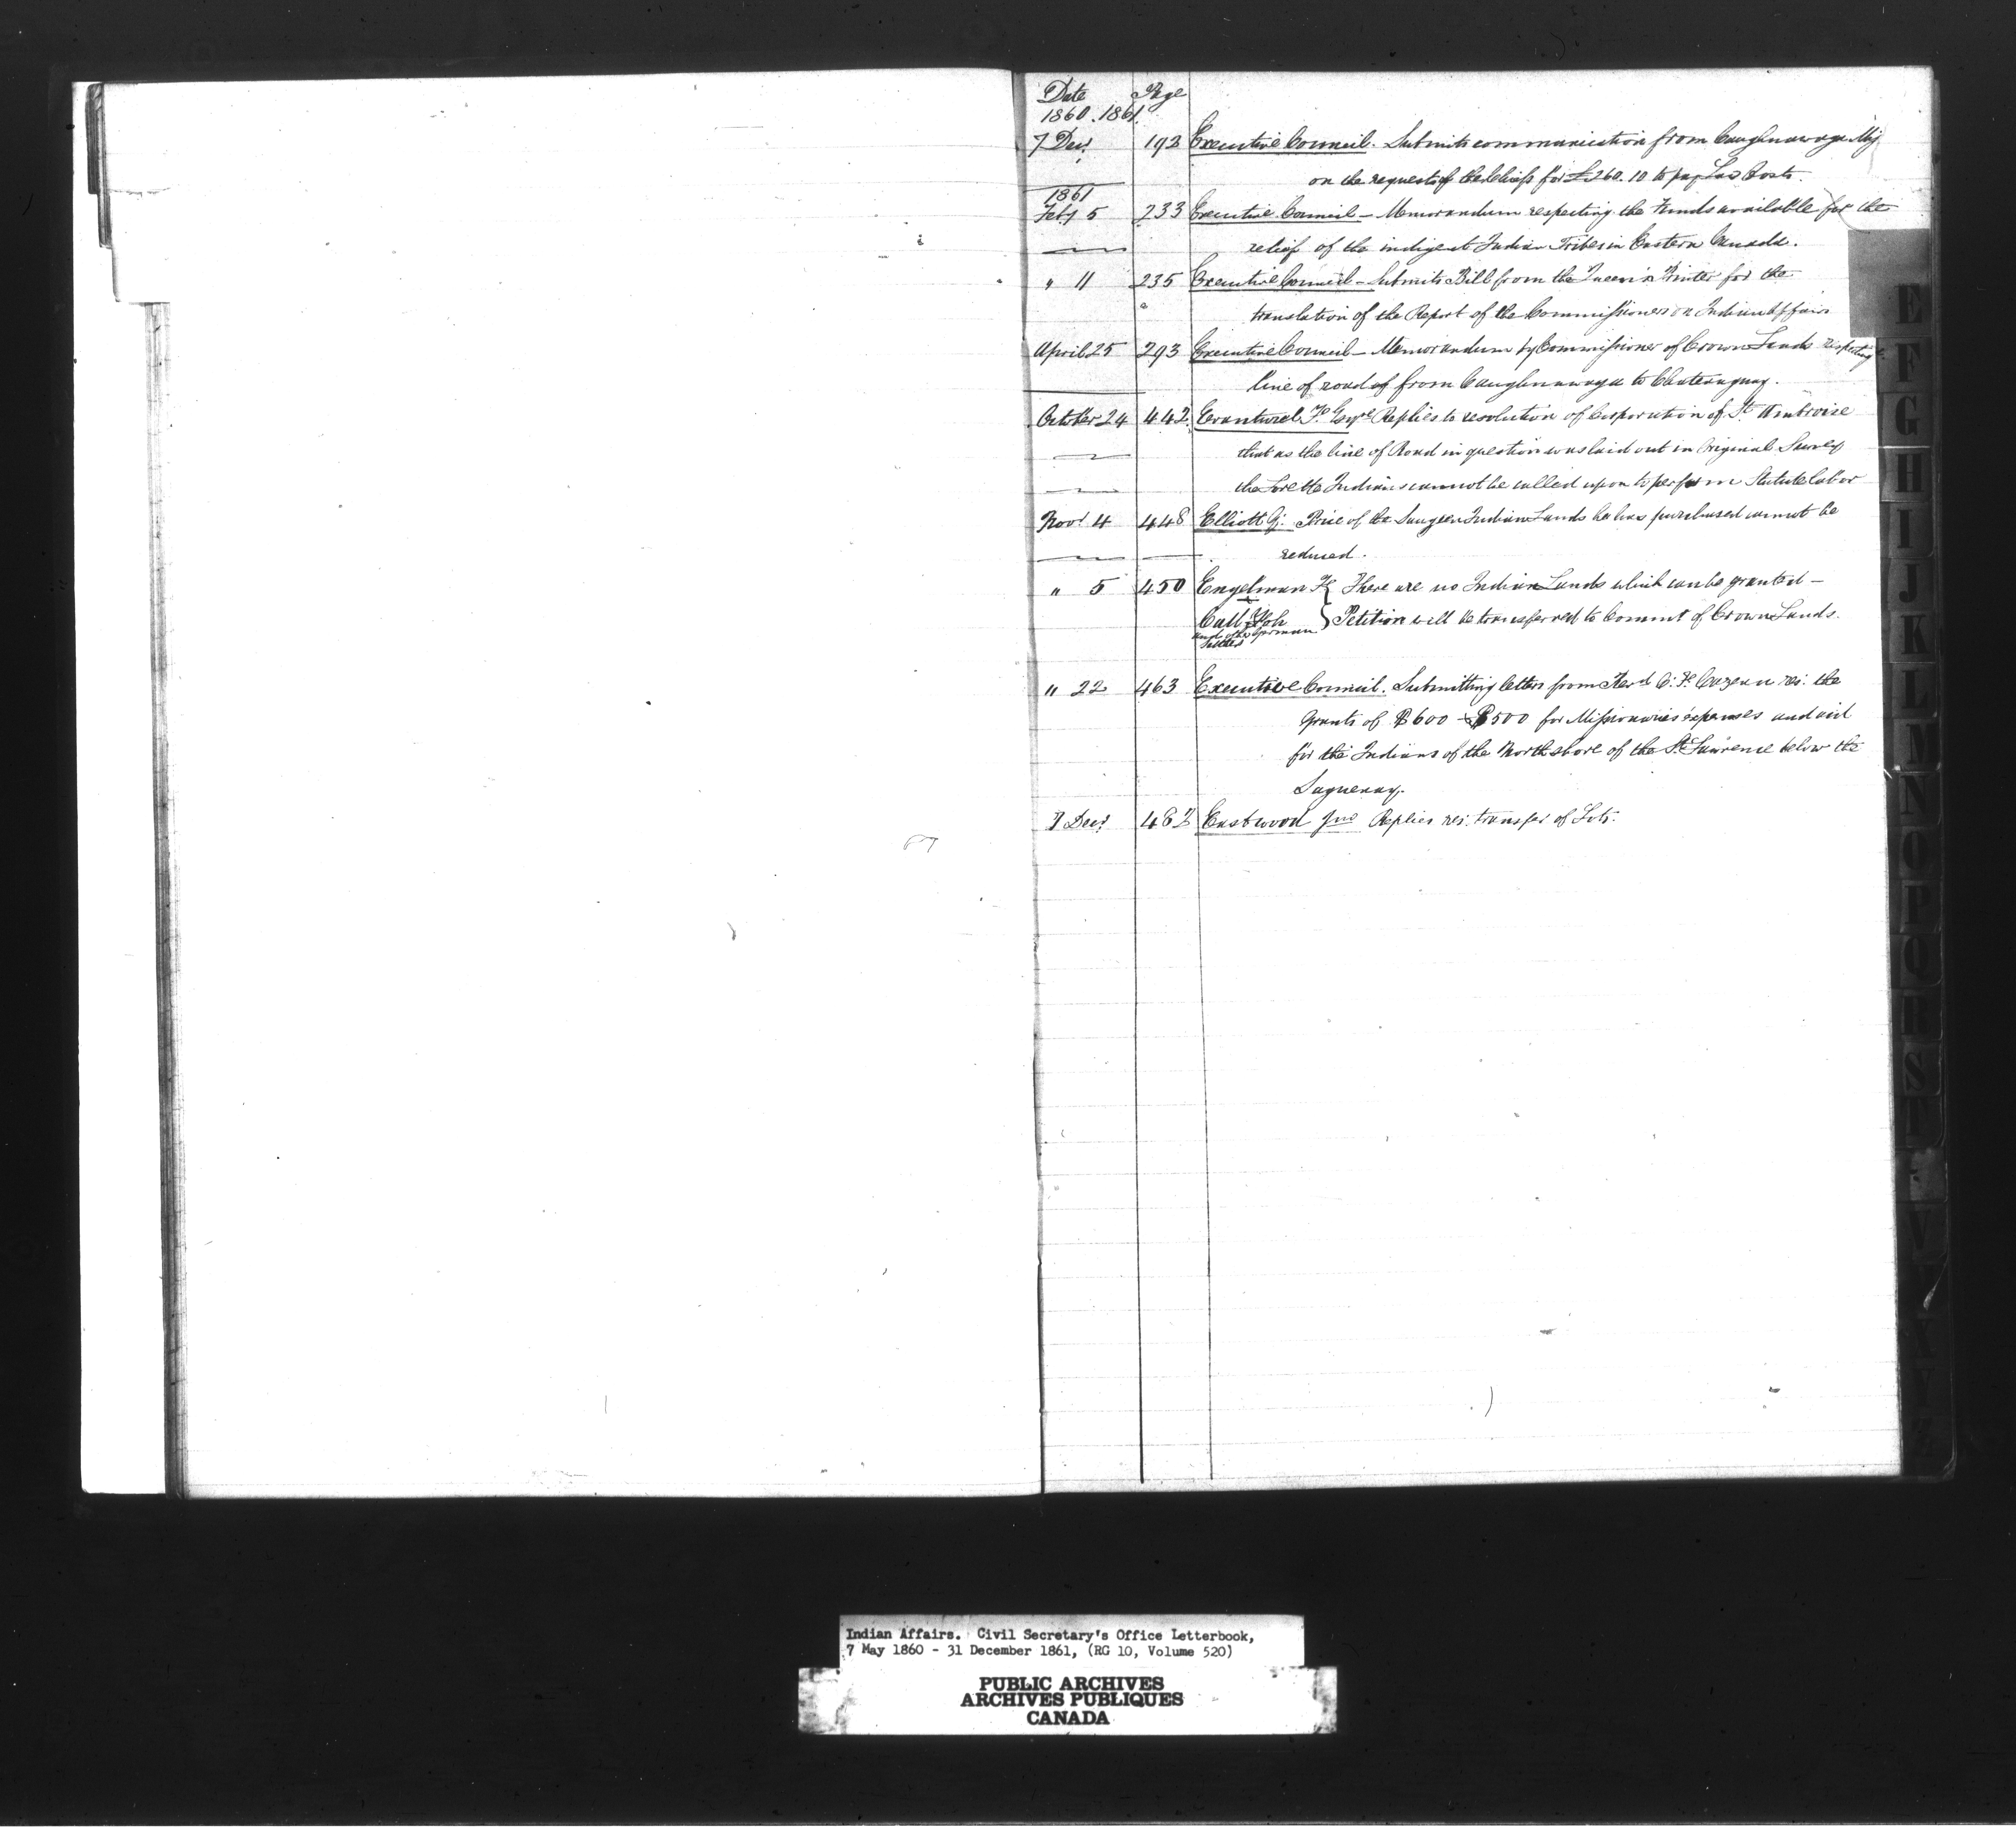 Date Page
1860.1861.
7 Decr 192 Executive Council. Submits communication from Caughnawaga
on the request of the Chiefs for £260.10 to pay Law Costs.
1861
Feby 5 233 Executive Council - Memorandum respecting the Funds available for the
relief of the indigent Indian Tribes in Eastern Canada.
" 11 235 Executive Council - Submits Bill from the Queen's Printer for the
translation of the Report of the Commissioners on Indian Affairs
April 25 293 Executive Council - Memorandum by Commissioner of Crown Lands respecting
line of road from Caughnawaga to Chateauguay.
October 24 442. Evanturel F. Esqre Replies to resolution of Corporation of St Ambroise
that as the line of Road in question was laid out in Original Survey
the Lorette Indians cannot be called upon to perform Statute labor
Novr 4 448 Elliott G. Price of the Saugeen Indian Lands he has purchased cannot be
reduced.
" 5 450 Engelman There are no Indian Lands which can be granted -
Petition will be transferred to Commr of Crown Lands.
and other German
Settlers
" 22 463 Executive Council. Submitting letters from Revd C. F. Cazeau res: the
grants of $600 - $500 for Missionaries' expenses and aid
for the Indians of the North shore of the St Lawrence below the
Saguenay.
7 Decr 482 Eastwood Jno Replies res: transfer of Lots.
E
F
G
H
I
J
K
L
M
N
O
P
Q
R
S
T
V
X
Y
Indian Affairs. Civil Secretary's Office Letterbook,
7 May 1860 - 31 December 1861, (RG 10, Volume 520)
PUBLIC ARCHIVES
ARCHIVES PUBLIQUES
CANADA